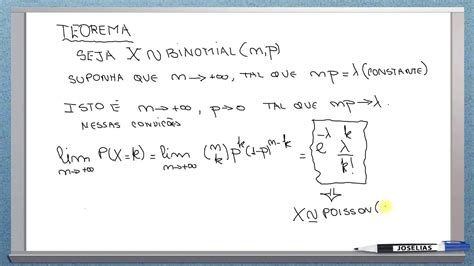 TEOREMA
SEJA X ~ BINOMIAL(m,p)
SUPONHA QUE m→+∞, TAL QUE mp=λ(CONSTANTE)
ISTO É m→+∞, p→0 TAL QUE mp→λ.
NESSAS CONDIÇÕES
lim P(X=k) = lim (m k) p^k (1-p)^{m-k} = e^{-λ} λ^k / k!
m→+∞ m→+∞
X ~ POISSON(
JOSELIAS